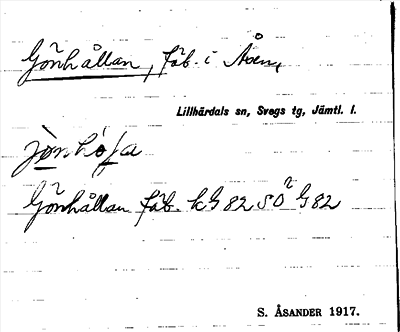 Gönhållan, fäb. i Åsen,
Lillhärdals sn, Svegs tg, Jämtl. l.
Gönhållan fäb. kG 82 SO G82
S. ÅSANDER 1917.